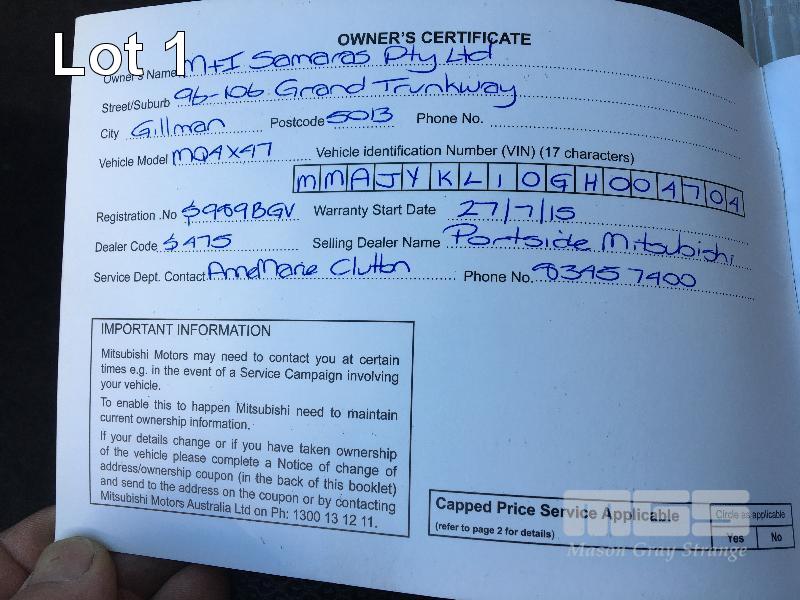 Lot 1
OWNER'S CERTIFICATE
Owner's Name M+I Samaras Pty Ltd
Street/Suburb 96-106 Grand Trunkway
City Gillman Postcode 5013 Phone No.
Vehicle Model MQ4X47 Vehicle identification Number (VIN) (17 characters)
MMAJYKL10GH004704
Registration .No S989BGV Warranty Start Date 27/7/15
Dealer Code S475 Selling Dealer Name Portside Mitsubishi
Service Dept. Contact AnneMarie Clutton Phone No. 8345 7400
IMPORTANT INFORMATION
Mitsubishi Motors may need to contact you at certain
times e.g. in the event of a Service Campaign involving
your vehicle.
To enable this to happen Mitsubishi need to maintain
current ownership information.
If your details change or if you have taken ownership
of the vehicle please complete a Notice of change of
address/ownership coupon (in the back of this booklet)
and send to the address on the coupon or by contacting
Mitsubishi Motors Australia Ltd on Ph: 1300 13 12 11.
Capped Price Service Applicable
(refer to page 2 for details)
Circle as applicable
Yes No
MGS
Mason Gray Strange